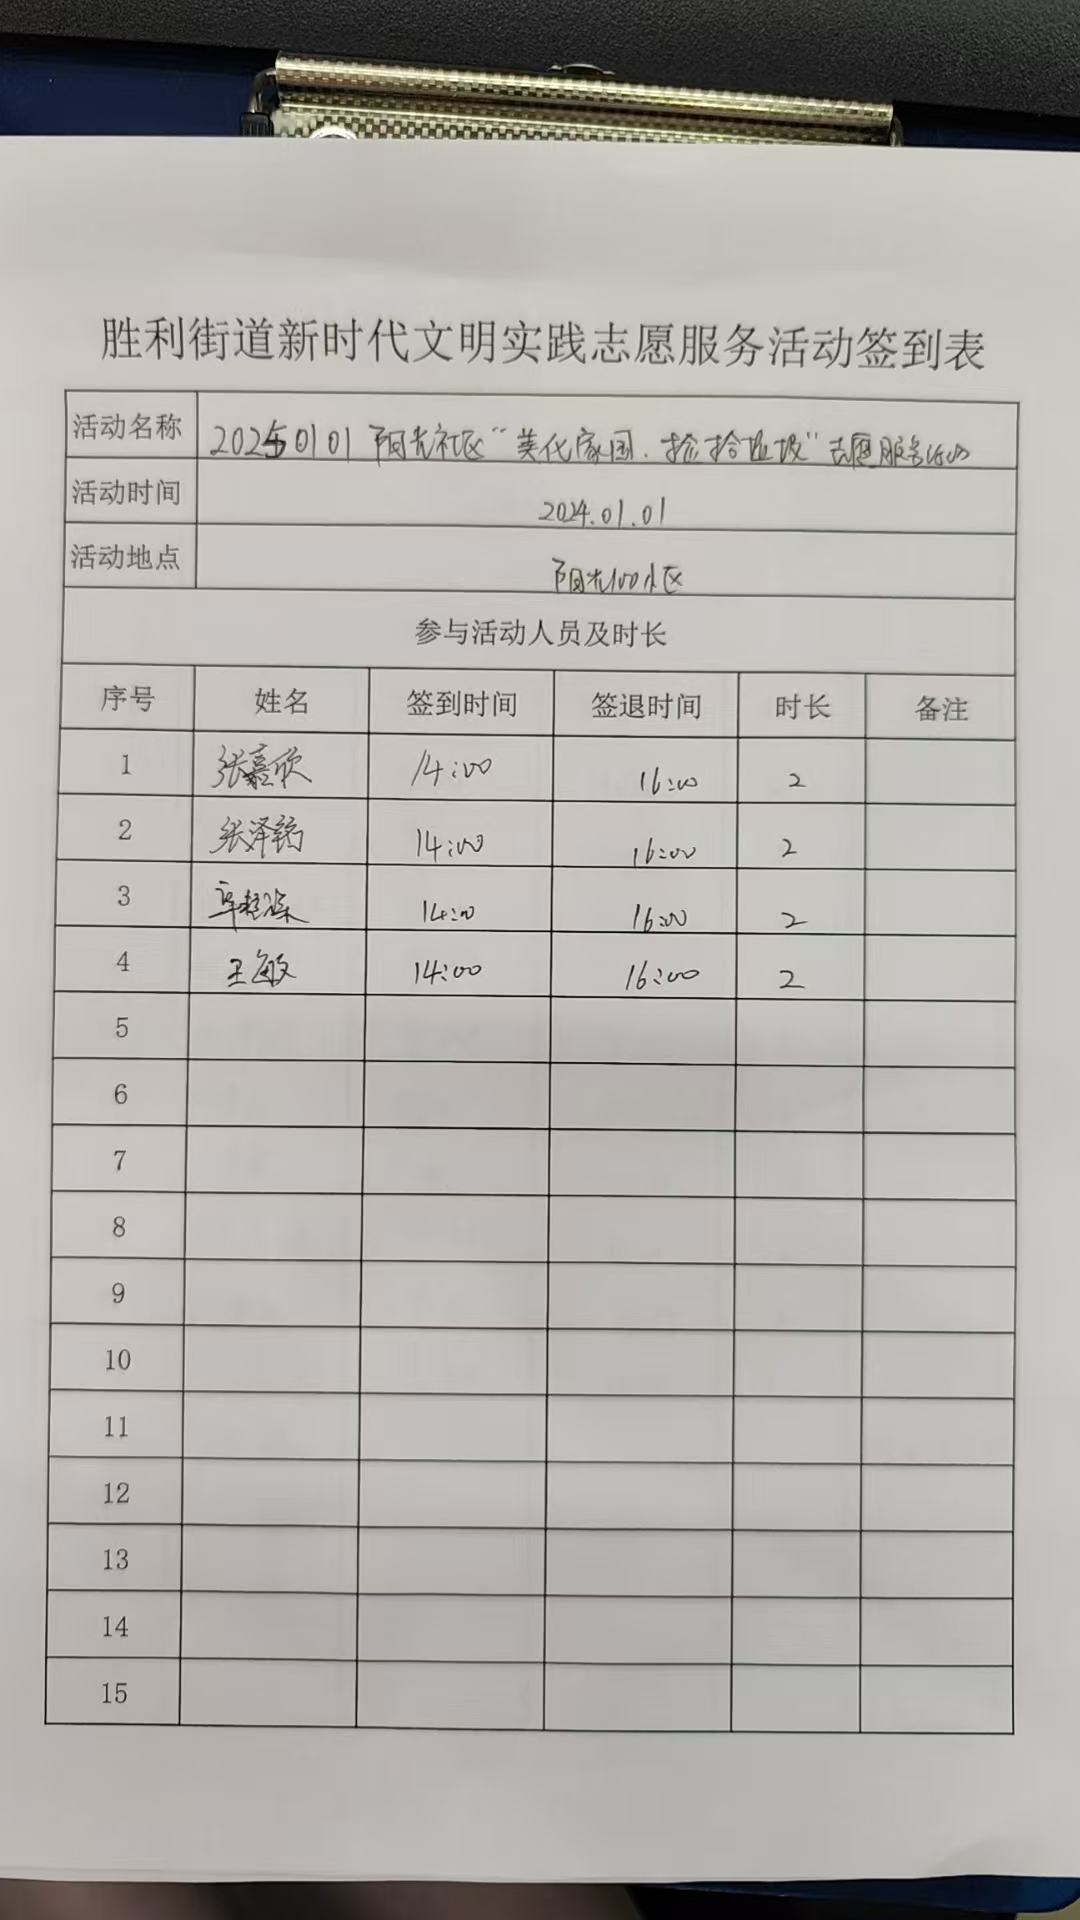 胜利街道新时代文明实践志愿服务活动签到表
活动名称 20250101 阳光社区“美化家园、捡拾垃圾”志愿服务活动
活动时间 2024.01.01
活动地点 阳光100小区
参与活动人员及时长
序号 姓名 签到时间 签退时间 时长 备注
1 张嘉欣 14:00 16:00 2
2 张泽铭 14:00 16:00 2
3 14:00 16:00 2
4 王敏 14:00 16:00 2
5
6
7
8
9
10
11
12
13
14
15